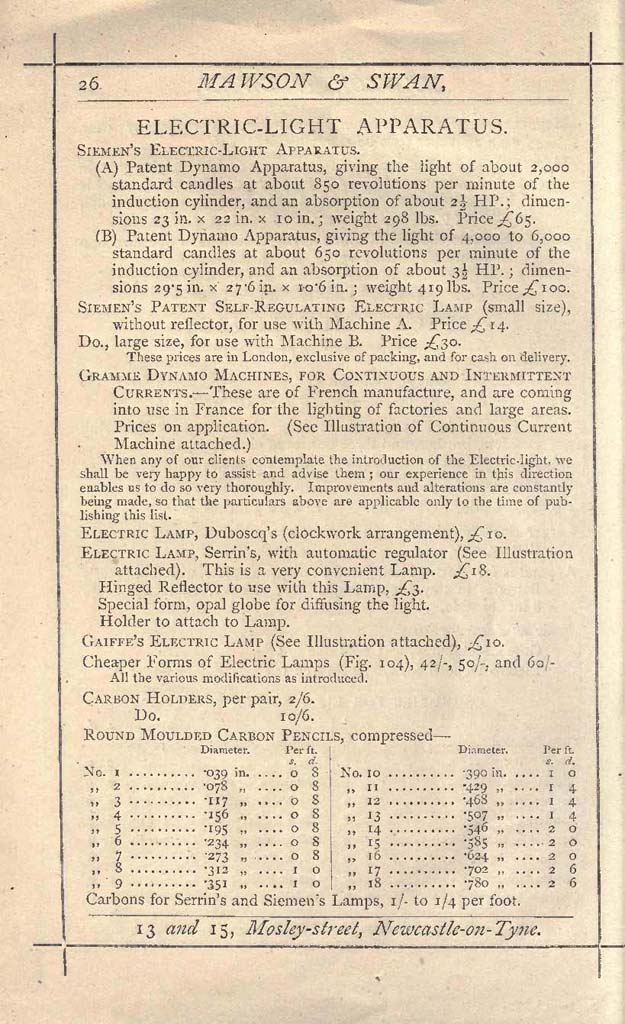 26.
MAWSON & SWAN,
ELECTRIC-LIGHT APPARATUS.
SIEMEN'S ELECTRIC-LIGHT APPARATUS.
(A) Patent Dynamo Apparatus, giving the light of about 2,000
standard candles at about 850 revolutions per minute of the
induction cylinder, and an absorption of about 2½ HP.; dimen-
sions 23 in. x 22 in. x 10 in.; weight 298 lbs. Price £65.
(B) Patent Dynamo Apparatus, giving the light of 4,000 to 6,000
standard candles at about 650 revolutions per minute of the
induction cylinder, and an absorption of about 3½ HP.; dimen-
sions 29·5 in. x 27·6 in. x 10·6 in.; weight 419 lbs. Price £100.
SIEMEN'S PATENT SELF-REGULATING ELECTRIC LAMP (small size),
without reflector, for use with Machine A. Price £14.
Do., large size, for use with Machine B. Price £30.
These prices are in London, exclusive of packing, and for cash on delivery.
GRAMME DYNAMO MACHINES, FOR CONTINUOUS AND INTERMITTENT
CURRENTS.—These are of French manufacture, and are coming
into use in France for the lighting of factories and large areas.
Prices on application. (See Illustration of Continuous Current
Machine attached.)
When any of our clients contemplate the introduction of the Electric-light, we
shall be very happy to assist and advise them; our experience in this direction
enables us to do so very thoroughly. Improvements and alterations are constantly
being made, so that the particulars above are applicable only to the time of pub-
lishing this list.
ELECTRIC LAMP, Duboscq's (clockwork arrangement), £10.
ELECTRIC LAMP, Serrin's, with automatic regulator (See Illustration
attached). This is a very convenient Lamp. £18.
Hinged Reflector to use with this Lamp, £3.
Special form, opal globe for diffusing the light.
Holder to attach to Lamp.
GAIFFE'S ELECTRIC LAMP (See Illustration attached), £10.
Cheaper Forms of Electric Lamps (Fig. 104), 42/-, 50/-, and 60/-
All the various modifications as introduced.
CARBON HOLDERS, per pair, 2/6.
Do. 10/6.
ROUND MOULDED CARBON PENCILS, compressed—
Diameter. Per ft. Diameter. Per ft.
s. d. s. d.
No. 1 .......... ·039 in. .... 0 8 No. 10 .......... ·390 in. .... 1 0
„ 2 .......... ·078 „ .... 0 8 „ 11 .......... ·429 „ .... 1 4
„ 3 .......... ·117 „ .... 0 8 „ 12 .......... ·468 „ .... 1 4
„ 4 .......... ·156 „ .... 0 8 „ 13 .......... ·507 „ .... 1 4
„ 5 .......... ·195 „ .... 0 8 „ 14 .......... ·546 „ .... 2 0
„ 6 .......... ·234 „ .... 0 8 „ 15 .......... ·585 „ .... 2 0
„ 7 .......... ·273 „ .... 0 8 „ 16 .......... ·624 „ .... 2 0
„ 8 .......... ·312 „ .... 1 0 „ 17 .......... ·702 „ .... 2 6
„ 9 .......... ·351 „ .... 1 0 „ 18 .......... ·780 „ .... 2 6
Carbons for Serrin's and Siemen's Lamps, 1/- to 1/4 per foot.
13 and 15, Mosley-street, Newcastle-on-Tyne.